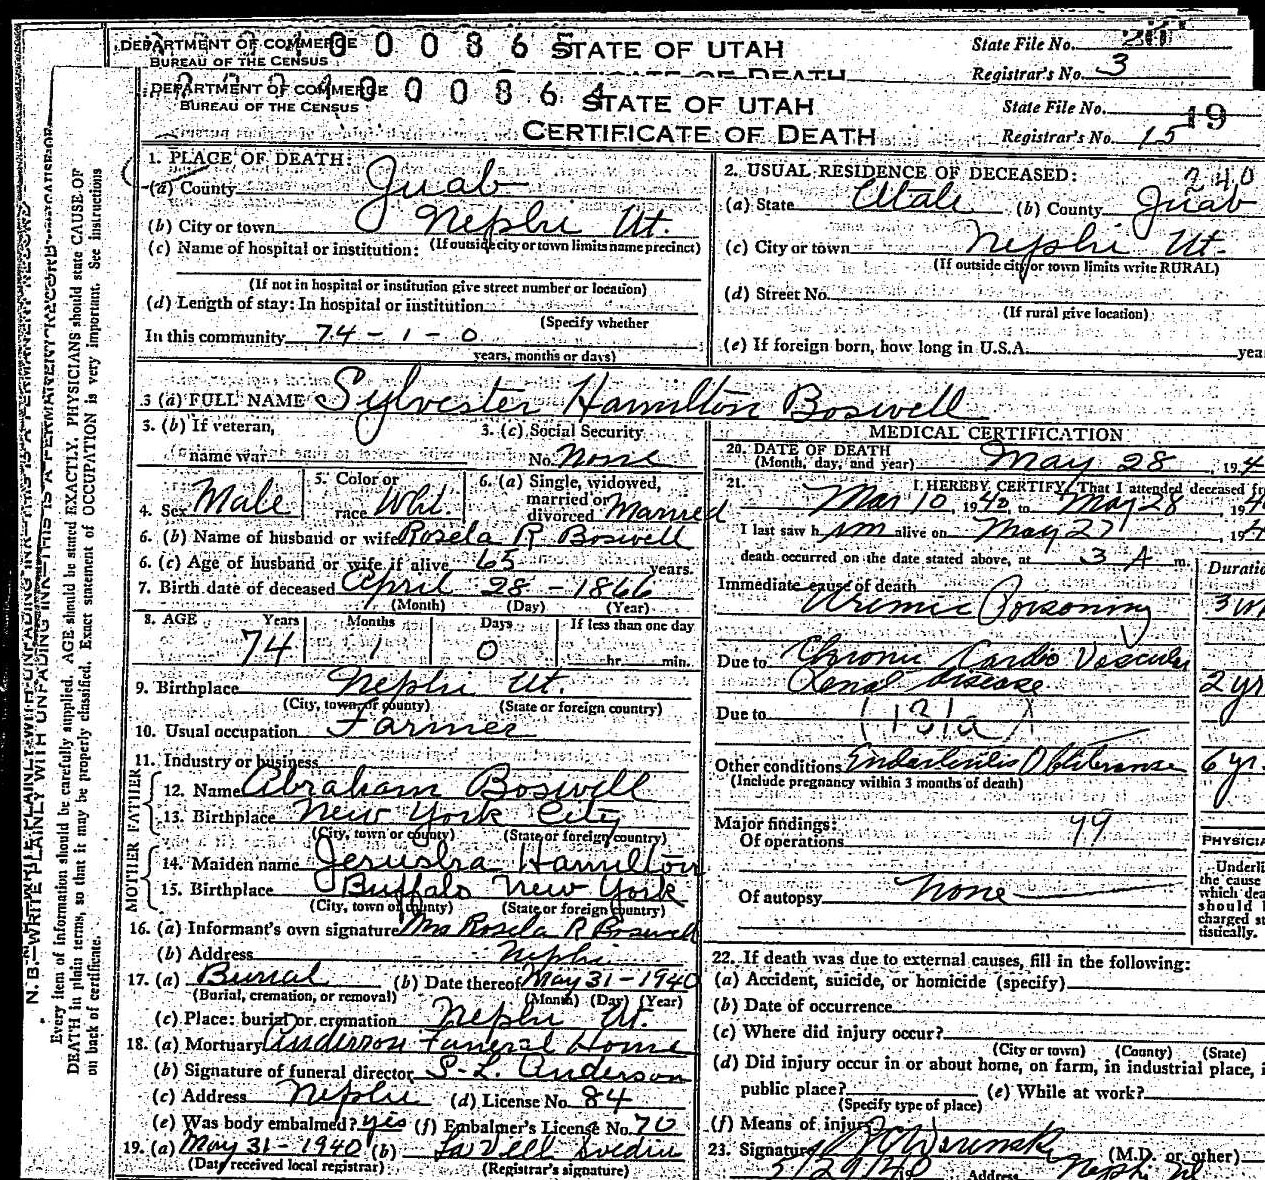 DEPARTMENT OF COMMERCE
BUREAU OF THE CENSUS
STATE OF UTAH
State File No. 20
Registrar's No. 3
DEPARTMENT OF COMMERCE
BUREAU OF THE CENSUS
STATE OF UTAH
CERTIFICATE OF DEATH
State File No. 19
Registrar's No. 15
1. PLACE OF DEATH:
(a) County Juab
(b) City or town Nephi Ut.
(If outside city or town limits name precinct)
(c) Name of hospital or institution:
(If not in hospital or institution give street number or location)
(d) Length of stay: In hospital or institution
(Specify whether
In this community 74 - 1 - 0
years, months or days)
2. USUAL RESIDENCE OF DECEASED:
240
(a) State Utah (b) County Juab
(c) City or town Nephi Ut.
(If outside city or town limits write RURAL)
(d) Street No.
(If rural give location)
(e) If foreign born, how long in U.S.A. yea
3 (a) FULL NAME Sylvester Hamilton Boswell
3. (b) If veteran,
name war
3. (c) Social Security
No. None
4. Sex Male
5. Color or
race Wht.
6. (a) Single, widowed,
married or
divorced Married
6. (b) Name of husband or wife Rosela R Boswell
6. (c) Age of husband or wife if alive 65 years.
7. Birth date of deceased April 28 - 1866
(Month) (Day) (Year)
8. AGE Years Months Days If less than one day
74 1 0 hr. min.
9. Birthplace Nephi Ut.
(City, town or county) (State or foreign country)
10. Usual occupation Farmer
11. Industry or business
FATHER
12. Name Abraham Boswell
13. Birthplace New York City
(City, town or county) (State or foreign country)
MOTHER
14. Maiden name Jerusha Hamilton
15. Birthplace Buffalo New York
(City, town or county) (State or foreign country)
16. (a) Informant's own signature Mrs Rosela R Boswell
(b) Address Nephi
17. (a) Burial (b) Date thereof May 31 - 1940
(Burial, cremation, or removal) (Month) (Day) (Year)
(c) Place: burial or cremation Nephi Ut.
18. (a) Mortuary Anderson Funeral Home
(b) Signature of funeral director Anderson
(c) Address Nephi (d) License No. 84
(e) Was body embalmed? yes (f) Embalmer's License No. 70
19. (a) May 31 - 1940 (b)
(Date received local registrar) (Registrar's signature)
MEDICAL CERTIFICATION
20. DATE OF DEATH
(Month, day, and year) May 28, 194
21. I HEREBY CERTIFY, That I attended deceased fr
Mar 10, 1940, to May 28, 194
I last saw him alive on May 27, 194
death occurred on the date stated above, at 3 A m.
Duratio
Immediate cause of death
Uremic Poisoning 3
Due to Chronic Cardio Vascular
Renal disease 2 yr
Due to (131a)
Other conditions Endarteritis Obliterans 6 yr.
(Include pregnancy within 3 months of death)
Major findings:
Of operations 99
Of autopsy None
PHYSICIA
Underli
the cause
which dea
should b
charged st
tistically.
22. If death was due to external causes, fill in the following:
(a) Accident, suicide, or homicide (specify)
(b) Date of occurrence
(c) Where did injury occur?
(City or town) (County) (State)
(d) Did injury occur in or about home, on farm, in industrial place, i
public place? (e) While at work?
(Specify type of place)
(f) Means of injury
23. Signature (M.D. or other)
5/29/40 Address Nephi
N. B.—WRITE PLAINLY WITH UNFADING INK—THIS IS A PERMANENT RECORD
Every item of information should be carefully supplied. AGE should be stated EXACTLY. PHYSICIANS should state CAUSE OF
DEATH in plain terms, so that it may be properly classified. Exact statement of OCCUPATION is very important. See instructions
on back of certificate.